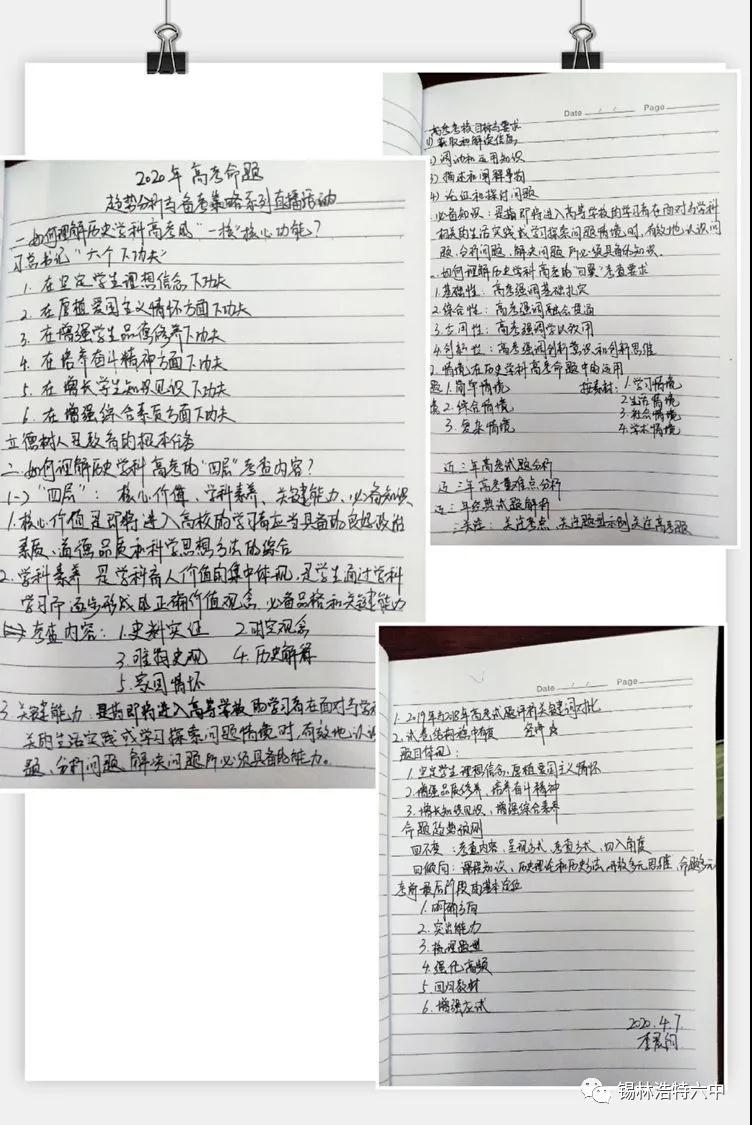 2020年高考命题
趋势分析与备考策略系列直播活动
一.如何理解历史学科高考的"一核"核心功能?
习总书记"六个下功夫"
1. 在坚定学生理想信念下功夫
2. 在厚植爱国主义情怀方面下功夫
3. 在增强学生品德修养下功夫
4. 在培养奋斗精神方面下功夫
5. 在增长学生知识见识下功夫
6. 在增强综合素质方面下功夫
立德树人是教育的根本任务
二.如何理解历史学科高考的"四层"考查内容?
(一)"四层": 核心价值、学科素养、关键能力、必备知识
1.核心价值是即将进入高校的学习者应当具备的良好政治
素质、道德品质和科学思想方法的综合
2.学科素养 是学科育人价值的集中体现,是学生通过学科
学习而逐步形成的正确价值观念、必备品格和关键能力
考查内容: 1.史料实证 2.时空观念
3.唯物史观 4.历史解释
5.家国情怀
3.关键能力:是指即将进入高等学校的学习者在面对与学科
关的生活实践或学习探索问题情境时,有效地认识
题、分析问题、解决问题所必须具备的能力。
Date / / Page
高考考核目标与要求
1) 获取和解读信息
2) 调动和运用知识
3) 描述和阐释事物
4) 论证和探讨问题
必备知识:是指即将进入高等学校的学习者在面对与学科
相关的生活实践或学习探索问题情境时,有效地认识问
题、分析问题、解决问题所必须具备的知识。
如何理解历史学科高考的"四翼"考查要求
1.基础性: 高考强调基础扎实
2.综合性: 高考强调融会贯通
3.应用性: 高考强调学以致用
4.创新性: 高考强调创新意识和创新思维
情境在历史学科高考命题中的运用
1.简单情境 按素材: 1.学习情境
2.综合情境 2.生活情境
3.复杂情境 3.社会情境
4.学术情境
近三年高考试题分析
近三年高考重难点分析
近三年经典试题解析
三关注: 关注考点、关注题型示例、关注高考题
Date / / Page
1.2019年与2018年高考试题评析关键词对比
2.试卷结构稳中有变
题目体现:
1.坚定学生理想信念,厚植爱国主义情怀
2.增强品质修养、培养奋斗精神
3.增长知识见识、增强综合素养
命题趋势预测
四不变:考查内容,呈现方式,考查方式,切入角度
四倾向:课程知识、历史理论和历史方法,开放多元思维,命题多元
考前最后阶段的基本定位
1.明确方向
2.突出能力
3.梳理题型
4.强化高频
5.回归教材
6.增强应试
2020.4.7.
锡林浩特六中